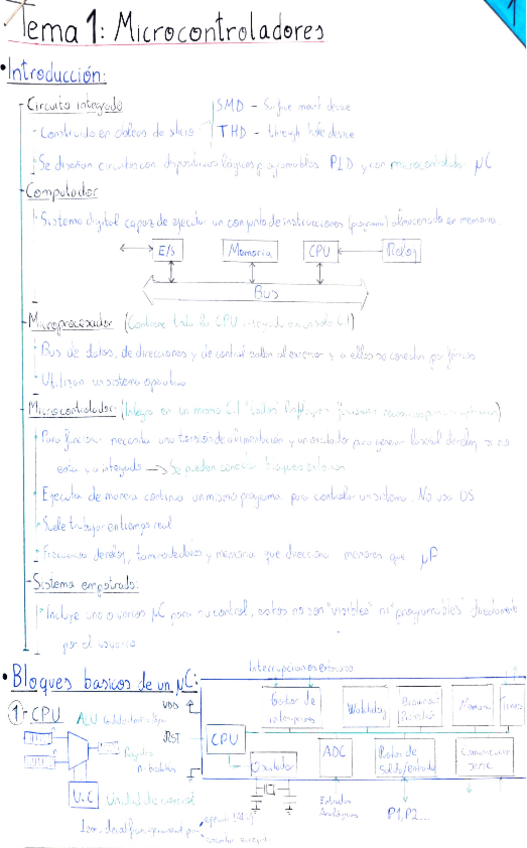 1
Tema 1: Microcontroladores
• Introducción:
- Circuito integrado
SMD - Surface mount device
- Construido en obleas de silicio
THD - through hole device
- Se diseñan circuitos con dispositivos lógicos programables PLD y con microcontrolador μC
- Computador
- Sistema digital capaz de ejecutar un conjunto de instrucciones (programa) almacenado en memoria.
E/S Memoria CPU Reloj
Bus
- Microprocesador (Contiene toda la CPU integrada en un solo C.I)
- Bus de datos, de direcciones y de control salen al exterior y a ellos se conectan periféricos
- Utilizan un sistema operativo
- Microcontrolador (Integra en un mismo C.I "todos"
- Para funcionar necesita una tensión de alimentación y un oscilador para generar la señal de reloj si no
está ya integrado → Se pueden conectar bloques externos
- Ejecuta de manera continua un mismo programa para controlar un sistema. No usa OS
- Suele trabajar en tiempo real
- Frecuencia de reloj, tamaño de datos y memoria que direcciona menores que μP
- Sistema empotrado:
- Incluye uno o varios μC para su control, estos no son "visibles" ni "programables" directamente
por el usuario
• Bloques basicos de un μC:
Interrupciones externas
1- CPU
VDD
RST
CPU
Gestor de interrupciones
Watchdog
Memoria
Timers
Oscilador
ADC
Puertos de salida/entrada
Comunicación serie
Registro
n-bits
U.C Unidad de control
Entradas Analógicas
P1, P2...